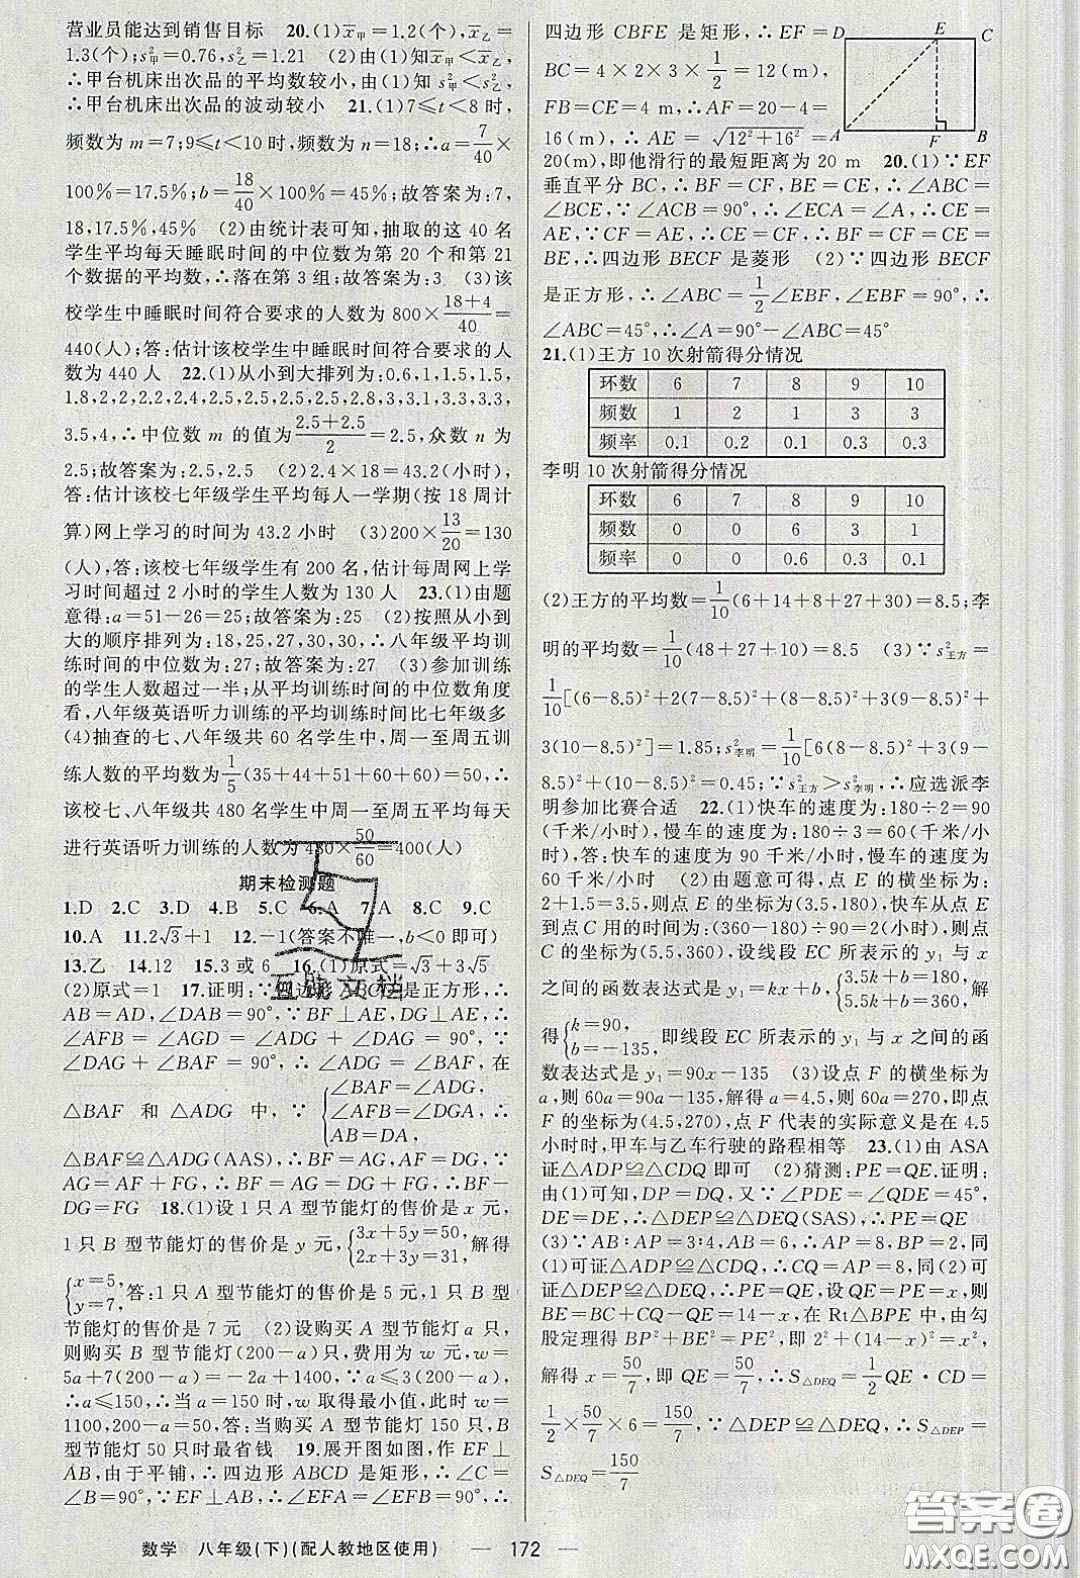 营业员能达到销售目标　20.(1)x̄甲=1.2(个),x̄乙=
1.3(个);s²甲=0.76,s²乙=1.21　(2)由(1)知 x̄甲<x̄乙,
∴甲台机床出次品的平均数较小,由(1)知 s²甲<s²乙,
∴甲台机床出次品的波动较小　21.(1)7≤t<8时,
频数为 m=7;9≤t<10时,频数为 n=18;∴a=7/40×
100%=17.5%;b=18/40×100%=45%;故答案为:7,
18,17.5%,45%　(2)由统计表可知,抽取的这 40 名
学生平均每天睡眠时间的中位数为第 20 个和第 21
个数据的平均数,∴落在第 3 组;故答案为:3　(3)该
校学生中睡眠时间符合要求的人数为 800×(18+4)/40=
440(人);答:估计该校学生中睡眠时间符合要求的人
数为 440 人　22.(1)从小到大排列为:0.6,1,1.5,1.5,
1.8,2,2,2,2.2,2.4,2.5,2.5,2.5,2.5,2.8,3.1,3.3,3.3,
3.5,4,∴中位数 m 的值为(2.5+2.5)/2=2.5,众数 n 为
2.5;故答案为:2.5,2.5　(2)2.4×18=43.2(小时),
答:估计该校七年级学生平均每人一学期(按 18 周计
算)网上学习的时间为 43.2 小时　(3)200×13/20=130
(人),答:该校七年级学生有 200 名,估计每周网上学
习时间超过 2 小时的学生人数为 130 人　23.(1)由题
意得:a=51-26=25;故答案为:25　(2)按照从小到
大的顺序排列为:18,25,27,30,30,∴八年级平均训
练时间的中位数为:27;故答案为:27　(3)参加训练
的学生人数超过一半;从平均训练时间的中位数角度
看,八年级英语听力训练的平均训练时间比七年级多
(4)抽查的七、八年级共 60 名学生中,周一至周五训
练人数的平均数为1/5(35+44+51+60+60)=50,∴
该校七、八年级共 480 名学生中周一至周五平均每天
进行英语听力训练的人数为 480×50/60=400(人)
期末检测题
1.D　2.C　3.D　4.B　5.C　6.A　7.A　8.C　9.C
10.A　11.2√3+1　12.-1(答案不唯一,b<0即可)
13.乙　14.12　15.3 或 6　16.(1)原式=√3+3√5
(2)原式=1　17.证明:∵四边形 ABCD 是正方形,∴
AB=AD,∠DAB=90°,∵BF⊥AE,DG⊥AE,∴
∠AFB=∠AGD=∠ADG+∠DAG=90°,∵
∠DAG+∠BAF=90°,∴∠ADG=∠BAF,在
△BAF 和 △ADG 中,∵{∠BAF=∠ADG,
∠AFB=∠DGA,∴
AB=DA,
△BAF≌△ADG(AAS),∴BF=AG,AF=DG,∵
AG=AF+FG,∴BF=AG=DG+FG,∴BF-
DG=FG　18.(1)设 1 只 A 型节能灯的售价是 x 元,
1 只 B 型节能灯的售价是 y 元,{3x+5y=50,2x+3y=31,解得
{x=5,y=7,答:1 只 A 型节能灯的售价是 5 元,1 只 B 型
节能灯的售价是 7 元　(2)设购买 A 型节能灯 a 只,
则购买 B 型节能灯(200-a)只,费用为 w 元,w=
5a+7(200-a)=-2a+1400,∵a≤3(200-a),∴
a≤150,∴当 a=150 时,w 取得最小值,此时 w=
1100,200-a=50,答:当购买 A 型节能灯 150 只,B
型节能灯 50 只时最省钱　19.展开图如图,作 EF⊥
AB,由于平铺,∴四边形 ABCD 是矩形,∴∠C=
∠B=90°,∵EF⊥AB,∴∠EFA=∠EFB=90°,∴
四边形 CBFE 是矩形,∴EF=
BC=4×2×3×1/2=12(m),
FB=CE=4 m,∴AF=20-4=
16(m),∴AE=√12²+16²=
20(m),即他滑行的最短距离为 20 m　20.(1)∵EF
垂直平分 BC,∴BF=CF,BE=CE,∴∠ABC=
∠BCE,∵∠ACB=90°,∴∠ECA=∠A,∴CE=
AE,∵CF=AE,∴CE=CF,∴BF=CF=CE=
BE,∴四边形 BECF 是菱形　(2)∵四边形 BECF
是正方形,∴∠ABC=1/2∠EBF,∠EBF=90°,∴
∠ABC=45°,∴∠A=90°-∠ABC=45°
D E C
A F B
21.(1)王方 10 次射箭得分情况
环数 6 7 8 9 10
频数 1 2 1 3 3
频率 0.1 0.2 0.1 0.3 0.3
李明 10 次射箭得分情况
环数 6 7 8 9 10
频数 0 0 6 3 1
频率 0 0 0.6 0.3 0.1
(2)王方的平均数=1/10(6+14+8+27+30)=8.5;李
明的平均数=1/10(48+27+10)=8.5　(3)∵s²王方=
1/10[(6-8.5)²+2(7-8.5)²+(8-8.5)²+3(9-8.5)²+
3(10-8.5)²]=1.85;s²李明=1/10[6(8-8.5)²+3(9-
8.5)²+(10-8.5)²=0.45;∵s²王方>s²李明,∴应选派李
明参加比赛合适　22.(1)快车的速度为:180÷2=90
(千米/小时),慢车的速度为:180÷3=60(千米/小
时),答:快车的速度为 90 千米/小时,慢车的速度为
60 千米/小时　(2)由题意可得,点 E 的横坐标为:
2+1.5=3.5,则点 E 的坐标为(3.5,180),快车从点 E
到点 C 用的时间为:(360-180)÷90=2(小时),则点
C 的坐标为(5.5,360),设线段 EC 所表示的 y₁ 与 x
之间的函数表达式是 y₁=kx+b,{3.5k+b=180,5.5k+b=360,解
得{k=90,b=-135,即线段 EC 所表示的 y₁ 与 x 之间的函
数表达式是 y₁=90x-135　(3)设点 F 的横坐标为
a,则 60a=90a-135,解得 a=4.5,则 60a=270,即点
F 的坐标为(4.5,270),点 F 代表的实际意义是在 4.5
小时时,甲车与乙车行驶的路程相等　23.(1)由 ASA
证△ADP≌△CDQ 即可　(2)猜测:PE=QE.证明:
由(1)可知,DP=DQ,又∵∠PDE=∠QDE=45°,
DE=DE,∴△DEP≌△DEQ(SAS),∴PE=QE
(3)∵AB:AP=3:4,AB=6,∴AP=8,BP=2,同
(1)可证△ADP≌△CDQ,∴CQ=AP=8,同(2)可
证△DEP≌△DEQ,∴PE=QE,设 QE=PE=x,则
BE=BC+CQ-QE=14-x,在 Rt△BPE 中,由勾
股定理得 BP²+BE²=PE²,即 2²+(14-x)²=x²,
解得 x=50/7,即 QE=50/7,∴S△DEQ=1/2QE·CD=
1/2×50/7×6=150/7,∵△DEP≌△DEQ,∴S△DEP=
S△DEQ=150/7
数学　八年级(下)(配人教地区使用)　— 172 —
答案圈
MXQE.COM